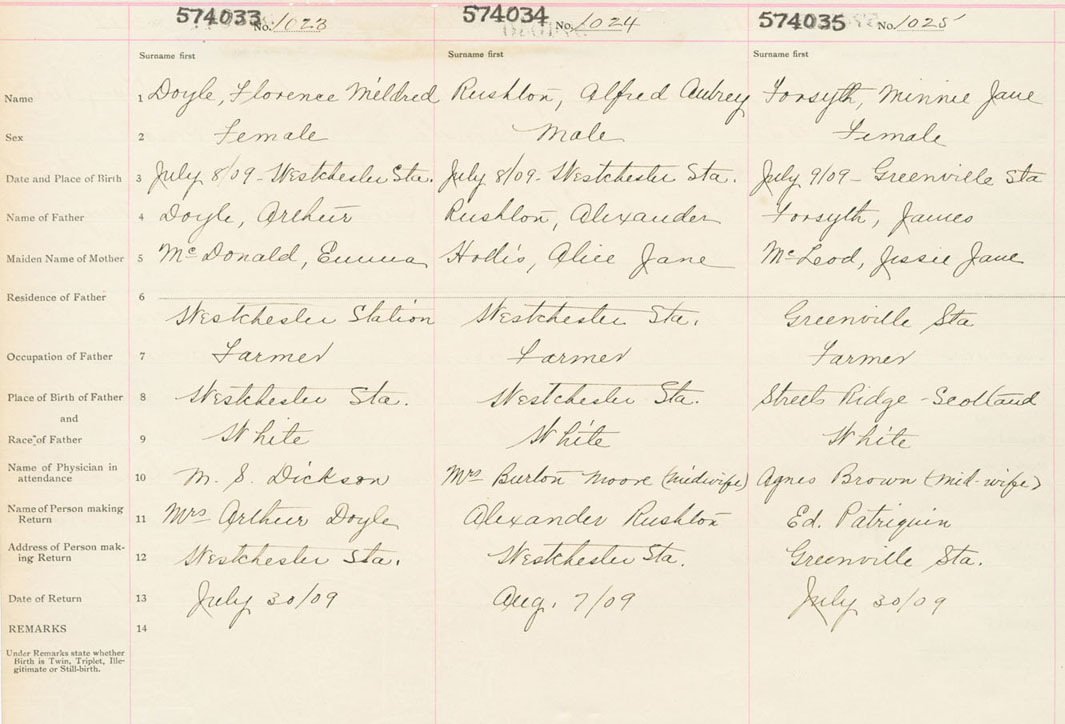 574033 No. 1023 574034 No. 1024 574035 No. 1025
Surname first Surname first Surname first
Name 1 Doyle, Florence Mildred Rushton, Alfred Aubrey Forsyth, Minnie Jane
Sex 2 Female Male Female
Date and Place of Birth 3 July 8/09 - Westchester Sta. July 8/09 - Westchester Sta. July 9/09 - Greenville Sta
Name of Father 4 Doyle, Arthur Rushton, Alexander Forsyth, James
Maiden Name of Mother 5 McDonald, Emma Hollis, Alice Jane McLeod, Jessie Jane
Residence of Father 6
Westchester Station Westchester Sta. Greenville Sta
Occupation of Father 7 Farmer Farmer Farmer
Place of Birth of Father 8 Westchester Sta. Westchester Sta. Streets Ridge - Scotland
and
Race of Father 9 White White White
Name of Physician in
attendance 10 M. S. Dickson Mrs Burton Moore (midwife) Agnes Brown (mid-wife)
Name of Person making
Return 11 Mrs Arthur Doyle Alexander Rushton Ed. Patriquin
Address of Person mak-
ing Return 12 Westchester Sta. Westchester Sta. Greenville Sta.
Date of Return 13 July 30/09 Aug. 7/09 July 30/09
REMARKS 14
Under Remarks state whether
Birth is Twin, Triplet, Ille-
gitimate or Still-birth.